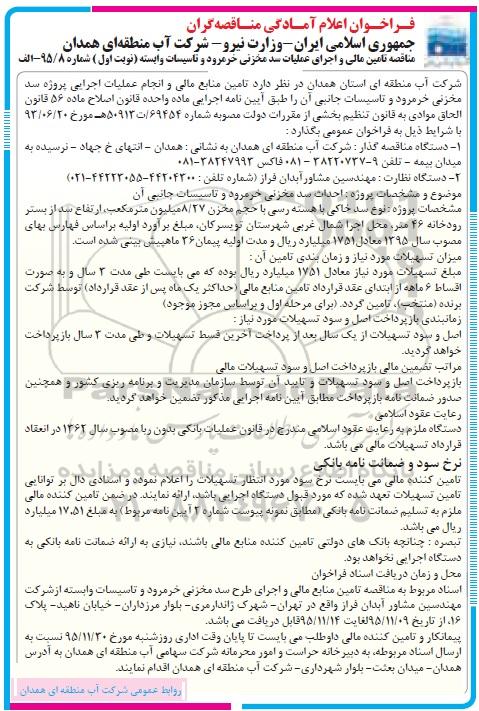 فـراخـوان اعلام آمـادگی مناقصه‌گران
جمهوری اسلامی ایران-وزارت نیرو- شرکت آب منطقه‌ای همدان
مناقصه تامین مالی و اجرای عملیات سد مخزنی خرمرود و تاسیسات وابسته (نوبت اول) شماره ۹۵/۸-الف
شرکت آب منطقه ای استان همدان در نظر دارد تامین منابع مالی و انجام عملیات اجرایی پروژه سد
مخزنی خرمرود و تاسیسات جانبی آن را طبق آیین نامه اجرایی ماده واحده قانون اصلاح ماده ۵۶ قانون
الحاق موادی به قانون تنظیم بخشی از مقررات دولت مصوبه شماره ۶۹۴۵۴/ت۵۰۹۱۳هـ مورخ ۹۳/۰۶/۲۰
با شرایط ذیل به فراخوان عمومی بگذارد :
۱- دستگاه مناقصه گذار : شرکت آب منطقه ای همدان به نشانی : همدان - انتهای خ جهاد - نرسیده به
میدان بیمه - تلفن ۹-۳۸۲۲۰۷۳۷ - ۰۸۱ فاکس ۳۸۲۴۷۹۹۳-۰۸۱
۲- دستگاه نظارت : مهندسین مشاورآبدان فراز (شماره تلفن : ۴۴۲۰۴۳۰۰-۴۴۲۲۳۰۵۵-۰۲۱)
موضوع و مشخصات پروژه : احداث سد مخزنی خرمرود و تاسیسات جانبی آن
مشخصات پروژه : نوع سد خاکی با هسته رسی با حجم مخزن ۸/۲۷میلیون مترمکعب، ارتفاع سد از بستر
رودخانه ۴۶ متر، محل اجرا شمال غربی شهرستان تویسرکان، مبلغ برآورد اولیه براساس فهارس بهای
مصوب سال ۱۳۹۵ معادل۱۷۵۱ میلیارد ریال و مدت اولیه پیمان۳۶ ماهپیش بینی شده است.
میزان تسهیلات مورد نیاز و زمان بندی تامین آن :
مبلغ تسهیلات مورد نیاز معادل ۱۷۵۱ میلیارد ریال بوده که می بایست طی مدت ۳ سال و به صورت
اقساط ۶ ماهه از ابتدای عقد قرارداد تامین منابع مالی (حداکثر یک ماه پس از عقد قرارداد) توسط شرکت
برنده (منتخب)، تامین گردد. (برای مرحله اول و براساس مجوز موجود)
زمانبندی بازپرداخت اصل و سود تسهیلات مورد نیاز :
اصل و سود تسهیلات از یک سال بعد از پرداخت آخرین قسط تسهیلات و طی مدت ۳ سال بازپرداخت
خواهد گردید.
مراتب تضمین مالی بازپرداخت اصل و سود تسهیلات مالی
بازپرداخت اصل و سود تسهیلات و تایید آن توسط سازمان مدیریت و برنامه ریزی کشور و همچنین
صدور ضمانت نامه بازپرداخت مطابق آیین نامه اجرایی مذکور تضمین خواهد گردید.
رعایت عقود اسلامی
دستگاه ملزم به رعایت عقود اسلامی مندرج در قانون عملیات بانکی بدون ربا مصوب سال ۱۳۶۲ در انعقاد
قرارداد تسهیلات مالی می باشد.
نرخ سود و ضمانت نامه بانکی
تامین کننده مالی می بایست نرخ سود مورد انتظار تسهیلات را اعلام نموده و اسنادی دال بر توانایی
تامین تسهیلات تعهد شده که مورد قبول دستگاه اجرایی باشد، ارائه نمایند. در ضمن تامین کننده مالی
ملزم به تسلیم ضمانت نامه بانکی (مطابق نمونه پیوست شماره ۲ آیین نامه مربوط) به مبلغ ۱۷،۵۱ میلیارد
ریال می باشد.
تبصره : چنانچه بانک های دولتی تامین کننده منابع مالی باشند، نیازی به ارائه ضمانت نامه بانکی به
دستگاه اجرایی نخواهد بود.
محل و زمان دریافت اسناد فراخوان
اسناد مربوط به مناقصه تامین منابع مالی و اجرای طرح سد مخزنی خرمرود و تاسیسات وابسته ازشرکت
مهندسین مشاور آبدان فراز واقع در تهران- شهرک ژاندارمری- بلوار مرزداران- خیابان ناهید- پلاک
۱۶، از تاریخ ۹۵/۱۱/۰۹لغایت ۹۵/۱۱/۱۴قابل دریافت می باشد.
پیمانکار و تامین کننده مالی داوطلب می بایست تا پایان وقت اداری روزشنبه مورخ ۹۵/۱۱/۳۰ نسبت به
ارسال اسناد مربوطه، به دبیرخانه حراست و امور محرمانه شرکت سهامی آب منطقه ای همدان به آدرس
همدان- میدان بعثت- بلوار شهرداری- شرکت آب منطقه ای همدان اقدام نمایند.
روابط عمومی شرکت آب منطقه ای همدان